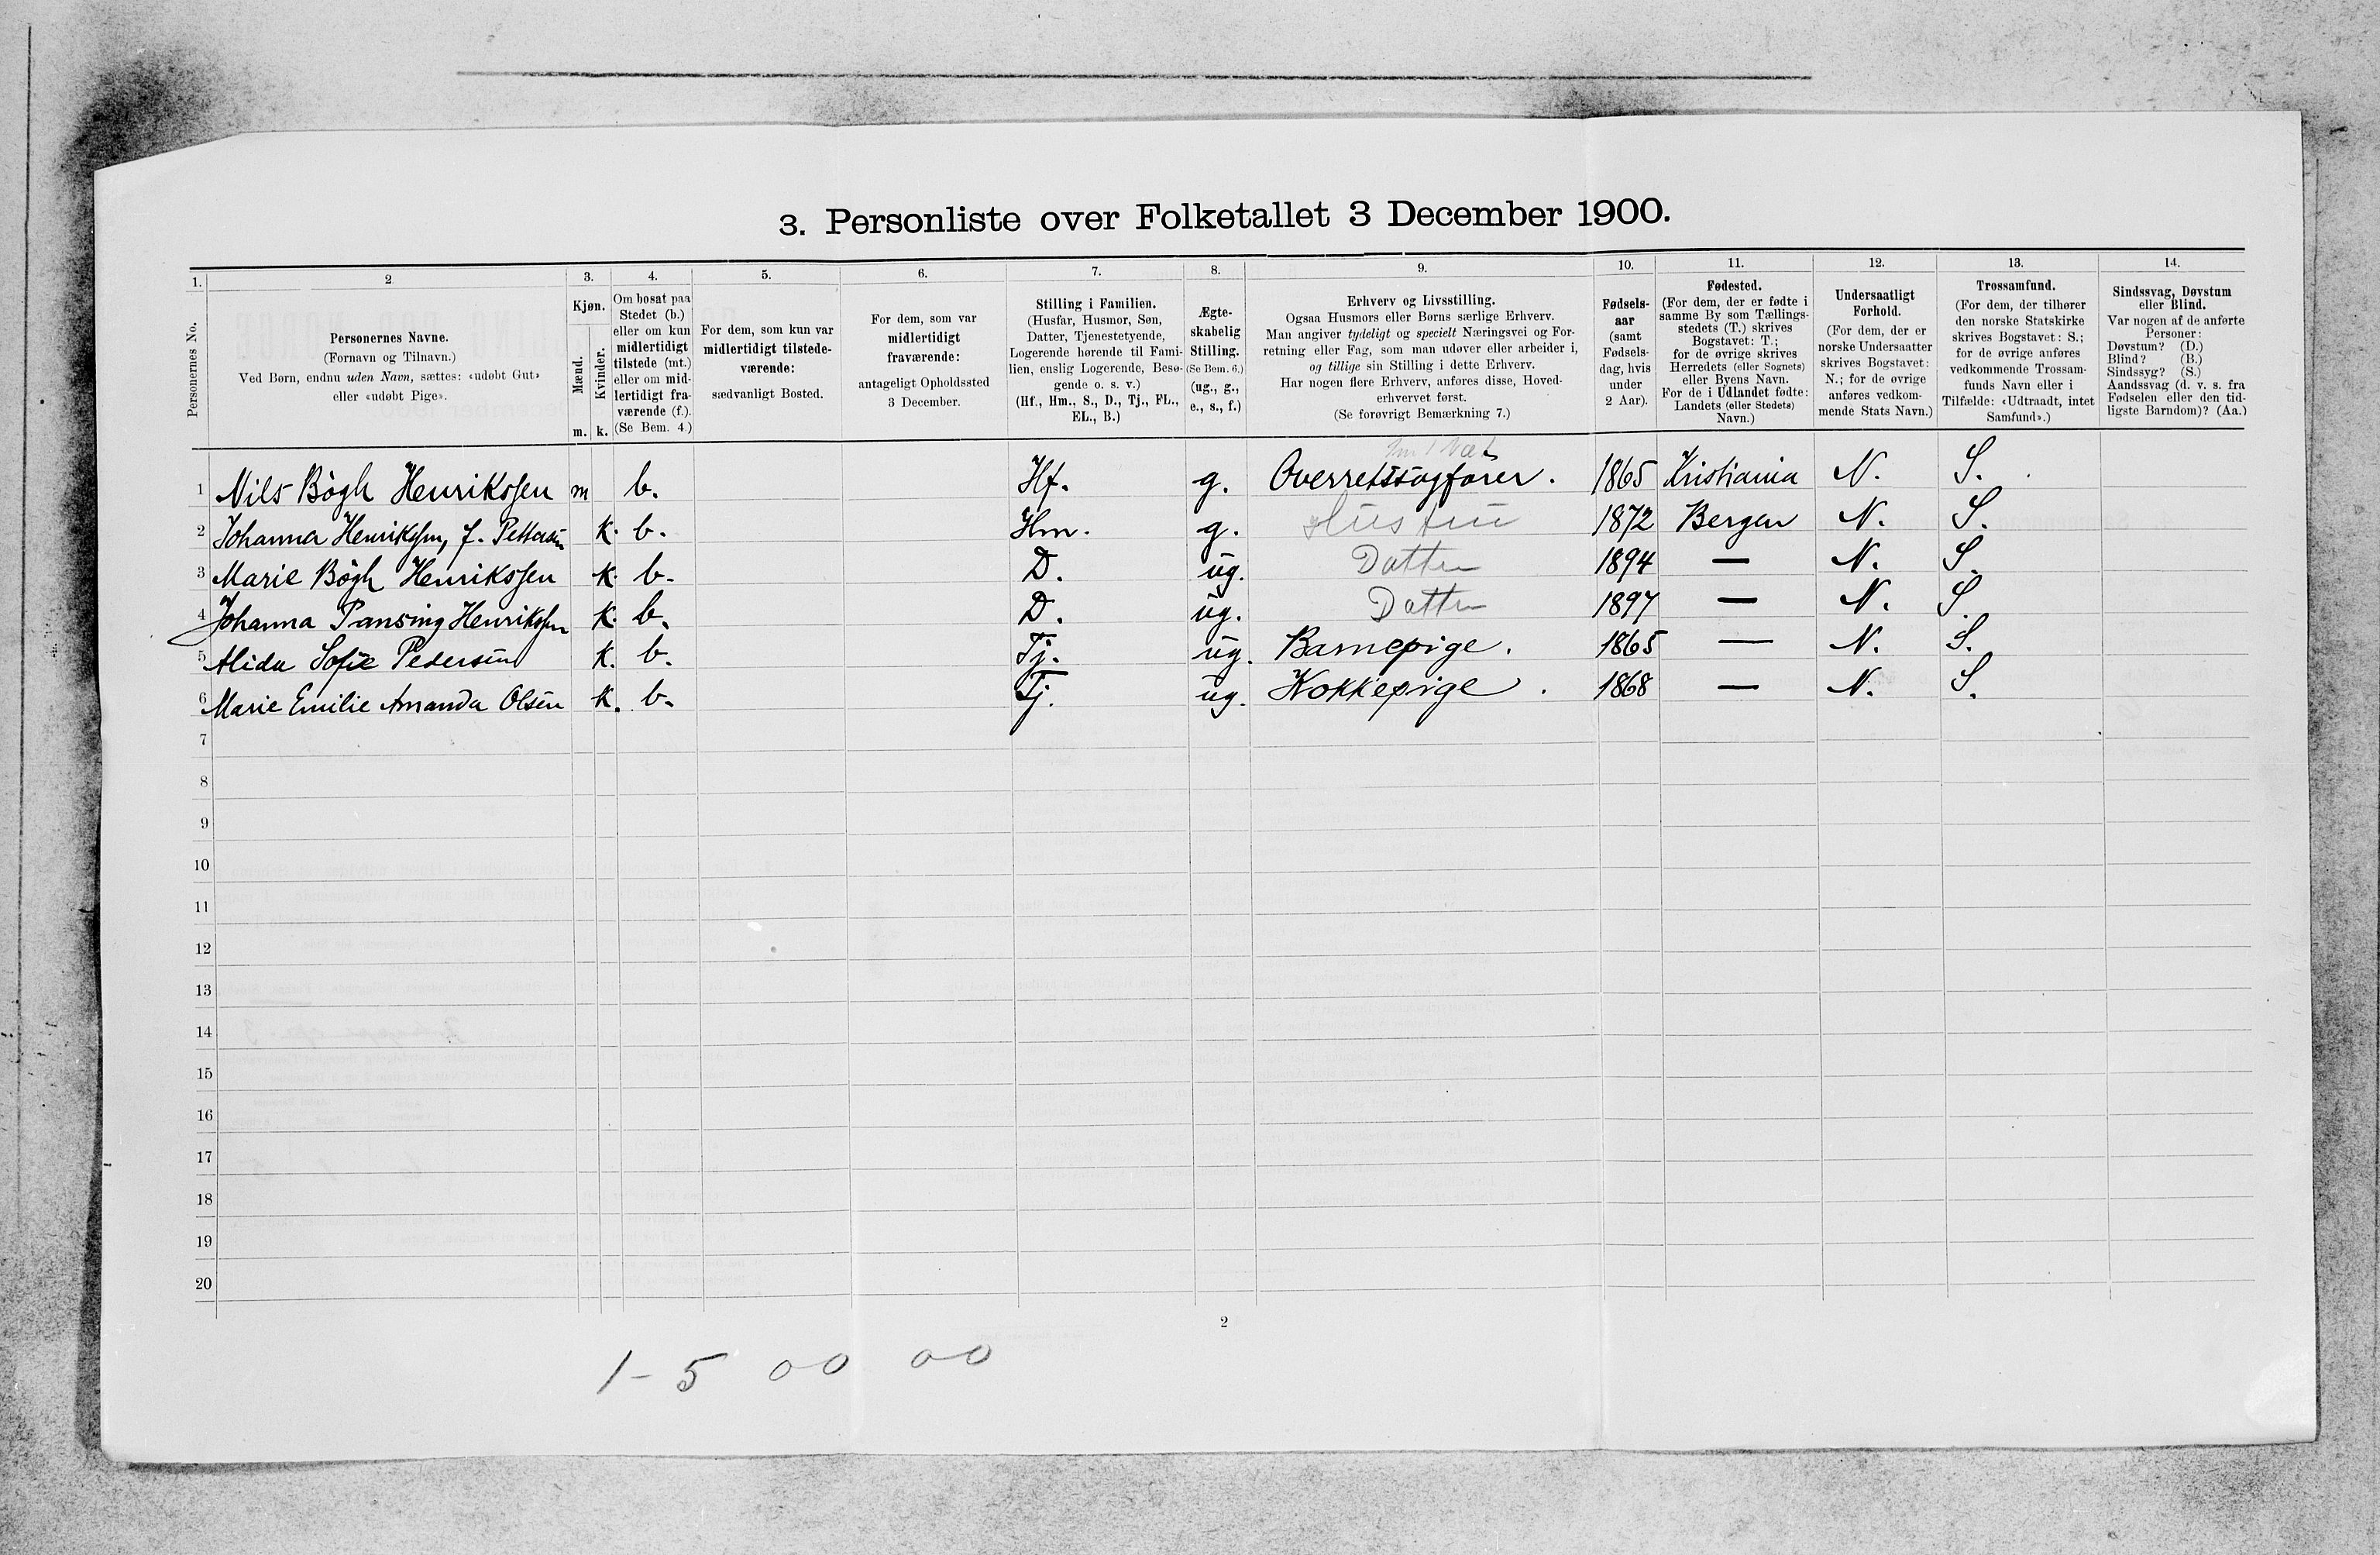 3. Personliste over Folketallet 3 December 1900.
1. 2 3. 4. 5. 6. 7. 8. 9. 10. 11. 12. 13. 14.
Personernes No.
Personernes Navne.
(Fornavn og Tilnavn.)
Ved Børn, endnu uden Navn, sættes: «udøbt Gut»
eller «udøbt Pige».
Kjøn.
Mænd. Kvinder.
m. k.
Om bosat paa
Stedet (b.)
eller om kun
midlertidigt
tilstede (mt.)
eller om mid-
lertidigt fra-
værende (f.).
(Se Bem. 4.)
For dem, som kun var
midlertidigt tilstede-
værende:
sædvanligt Bosted.
For dem, som var
midlertidigt
fraværende:
antageligt Opholdssted
3 December.
Stilling i Familien.
(Husfar, Husmor, Søn,
Datter, Tjenestetyende,
Logerende hørende til Fami-
lien, enslig Logerende, Besø-
gende o. s. v.)
(Hf., Hm., S., D., Tj., FL.,
EL., B.)
Ægte-
skabelig
Stilling.
(Se Bem. 6.)
(ug., g.,
e., s., f.)
Erhverv og Livsstilling.
Ogsaa Husmors eller Børns særlige Erhverv.
Man angiver tydeligt og specielt Næringsvei og For-
retning eller Fag, som man udøver eller arbeider i,
og tillige sin Stilling i dette Erhverv.
Har nogen flere Erhverv, anføres disse, Hoved-
erhvervet først.
(Se forøvrigt Bemærkning 7.)
Fødsels-
aar
(samt
Fødsels-
dag, hvis
under
2 Aar).
Fødested.
(For dem, der er fødte i
samme By som Tællings-
stedets (T.) skrives
Bogstavet: T.;
for de øvrige skrives
Herredets (eller Sognets)
eller Byens Navn.
For de i Udlandet fødte:
Landets (eller Stedets)
Navn.)
Undersaatligt
Forhold.
(For dem, der er
norske Undersaatter
skrives Bogstavet:
N.; for de øvrige
anføres vedkom-
mende Stats Navn.)
Trossamfund.
(For dem, der tilhører
den norske Statskirke
skrives Bogstavet: S.;
for de øvrige anføres
vedkommende Trossam-
funds Navn eller i
Tilfælde: «Udtraadt, intet
Samfund».)
Sindssvag, Døvstum
eller Blind.
Var nogen af de anførte
Personer:
Døvstum? (D.)
Blind? (B.)
Sindssyg? (S.)
Aandssvag (d. v. s. fra
Fødselen eller den tid-
ligste Barndom)? (Aa.)
1 Nils Bögh Henrikssen m b. Hf. g. Overretssagförer. 1865 Kristiania N. S.
2 Johanna Henrikssen, f. Pettersen k. b. Hm. g. Hustru 1872 Bergen N. S.
3 Marie Bögh Henrikssen k. b. D. ug. Datter 1894 — N. S.
4 Johanna Pansing Henrikssen k. b. D. ug. Datter 1897 — N. S.
5 Alida Sofie Pedersen k. b. Tj. ug. Barnepige. 1865 — N. S.
6 Marie Emilie Amanda Olsen k. b. Tj. ug. Kokkepige. 1868 — N. S.
7
8
9
10
11
12
13
14
15
16
17
18
19
20
2
1 - 5 00 00